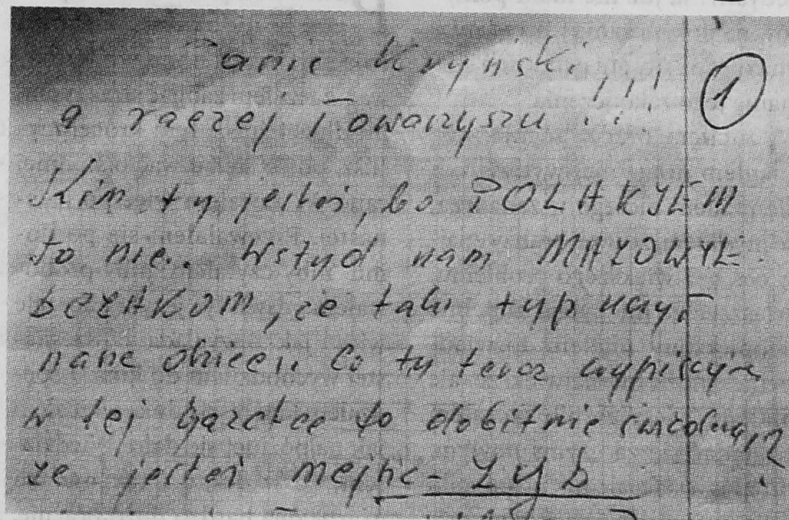 Panie Kryński!!!
a raczej Towarzyszu!!!
①
Kim ty jesteś, bo POLAKIEM
to nie. Wstyd nam MAZOWIE-
że taki typ uczył
nasze dzieci. Co ty teraz wypisujesz
w tej gazetce to dobitnie świadczy,
że jesteś - żyb